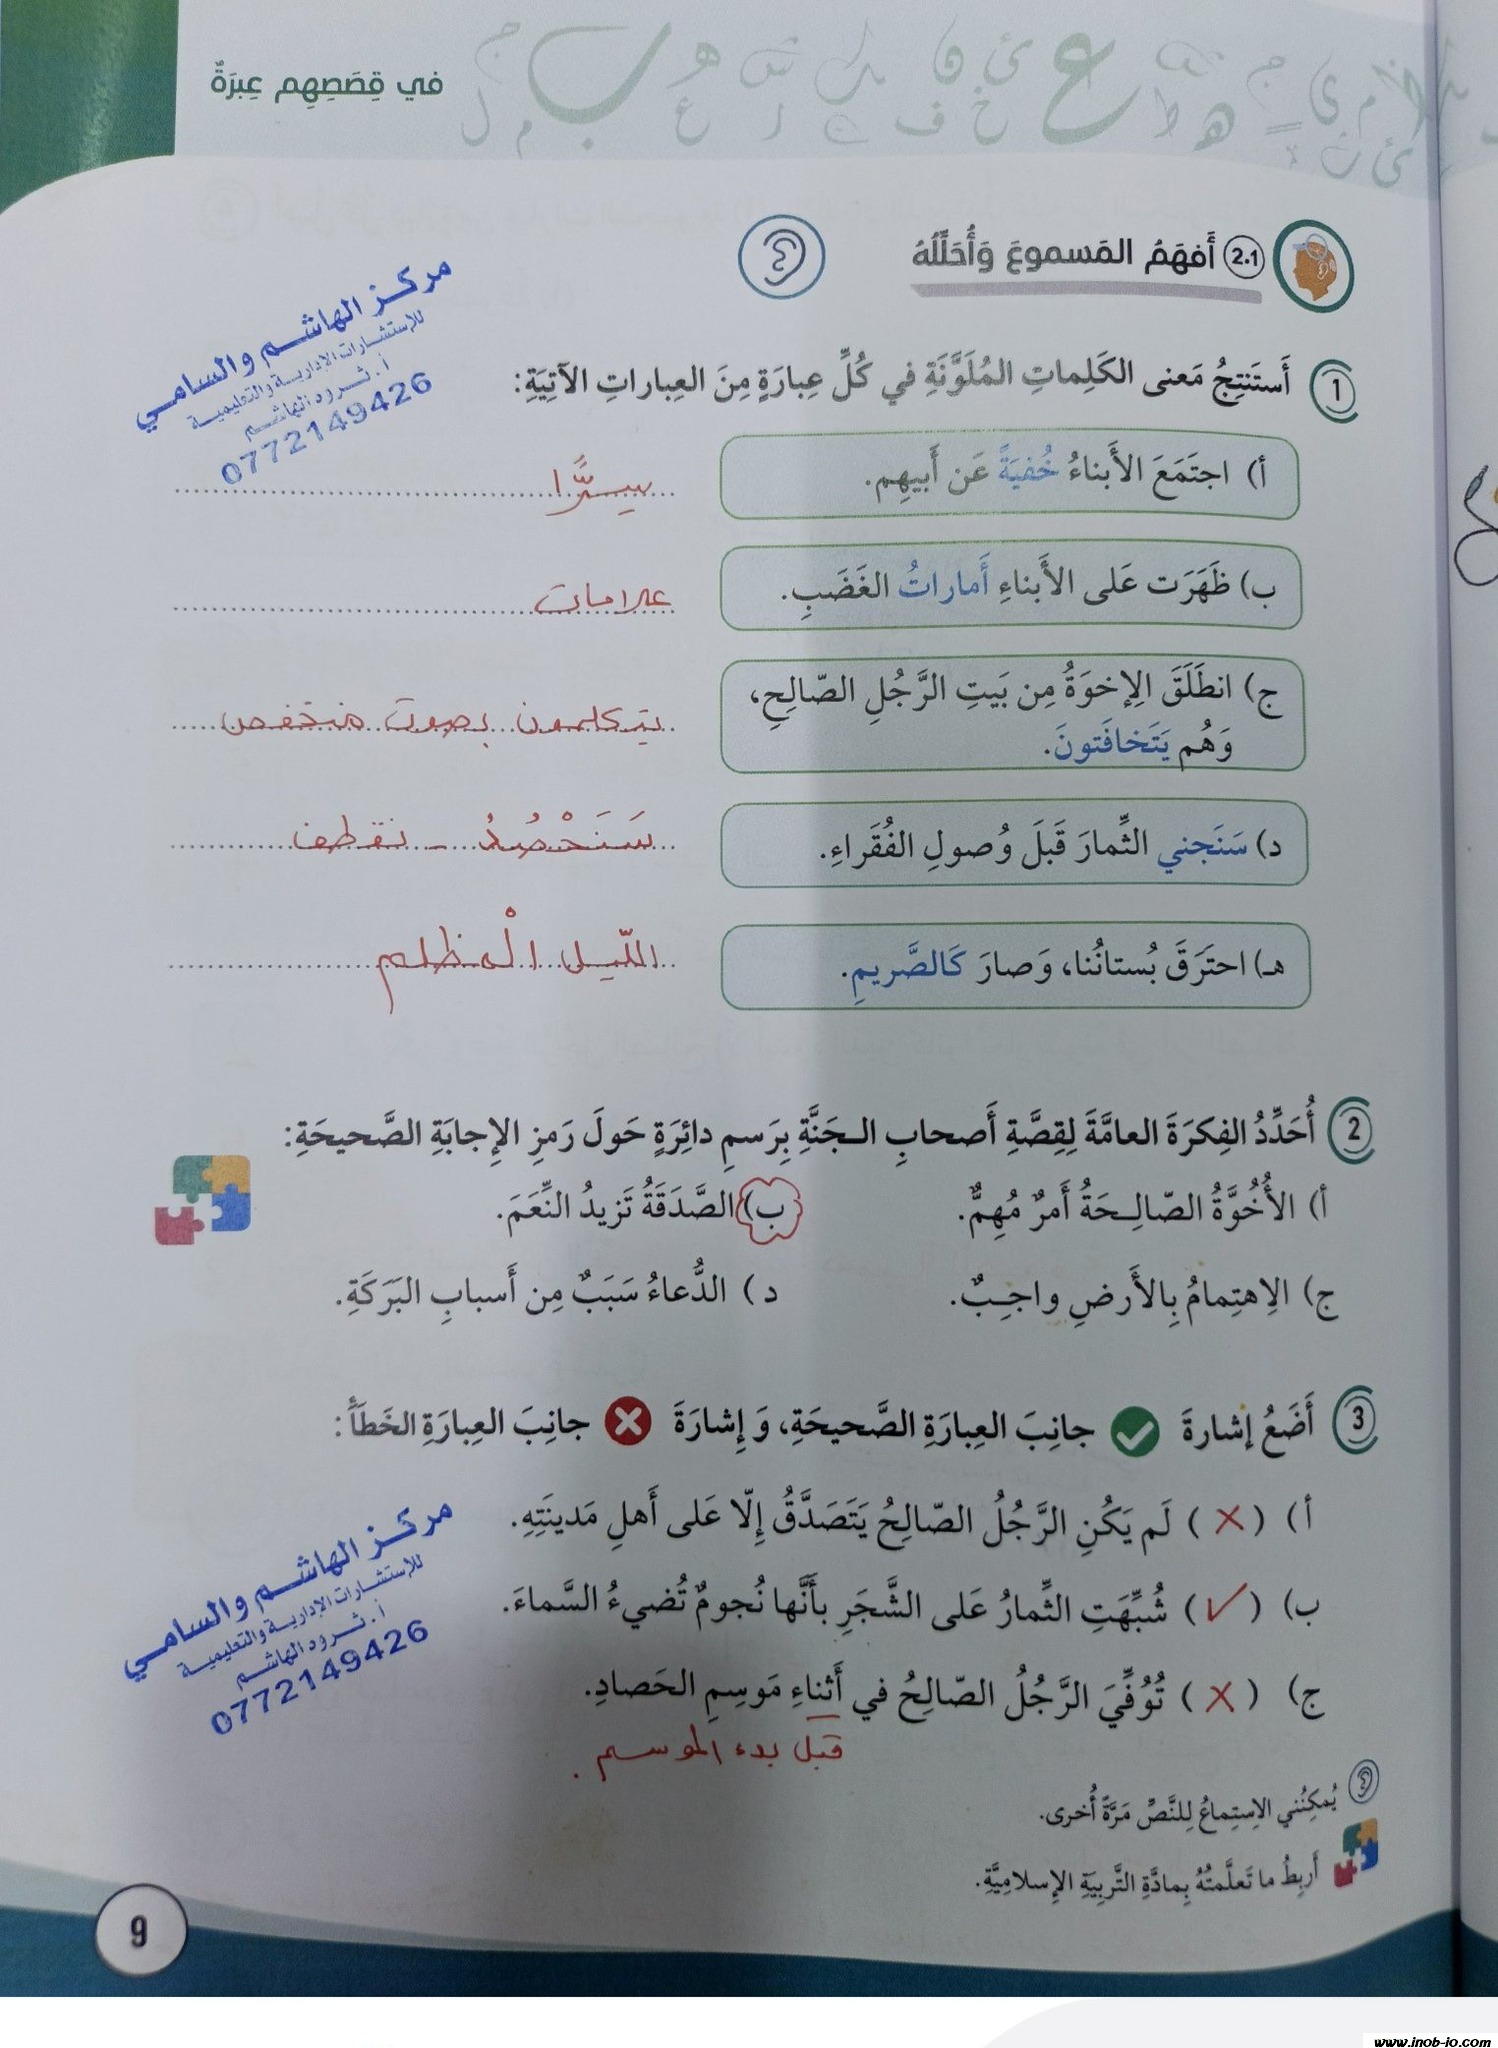 في قِصَصِهِم عِبرَةٌ
2.1 أَفهَمُ المَسموعَ وَأُحَلِّلُهُ
مركز الهاشم والسامي
للإستشارات الإدارية والتعليمية
أ. ثرود الهاشم
0772149426
1 أَستَنتِجُ مَعنى الكَلِماتِ المُلَوَّنَةِ في كُلِّ عِبارَةٍ مِنَ العِباراتِ الآتِيَةِ:
أ) اجتَمَعَ الأَبناءُ خُفيَةً عَن أَبيهِم. سِرًّا
ب) ظَهَرَت عَلى الأَبناءِ أَماراتُ الغَضَبِ. علامات
ج) انطَلَقَ الإِخوَةُ مِن بَيتِ الرَّجُلِ الصّالِحِ،
وَهُم يَتَخافَتونَ. يتكلمون بصوت منخفض
د) سَنَجني الثِّمارَ قَبلَ وُصولِ الفُقَراءِ. سَنَحْصُدُ - نقطف
هـ) احتَرَقَ بُستانُنا، وَصارَ كَالصَّريمِ. اللّيل الْمظلم
2 أُحَدِّدُ الفِكرَةَ العامَّةَ لِقِصَّةِ أَصحابِ الـجَنَّةِ بِرَسمِ دائِرَةٍ حَولَ رَمزِ الإِجابَةِ الصَّحيحَةِ:
أ) الأُخُوَّةُ الصّالِـحَةُ أَمرٌ مُهِمٌّ. ب) الصَّدَقَةُ تَزيدُ النِّعَمَ.
ج) الِاهتِمامُ بِالأَرضِ واجِبٌ. د) الدُّعاءُ سَبَبٌ مِن أَسبابِ البَرَكَةِ.
3 أَضَعُ إِشارةَ ✓ جانِبَ العِبارَةِ الصَّحيحَةِ، وَ إِشارَةَ ✗ جانِبَ العِبارَةِ الخَطَأِ:
أ) ( ✗ ) لَم يَكُنِ الرَّجُلُ الصّالِحُ يَتَصَدَّقُ إِلّا عَلى أَهلِ مَدينَتِهِ.
ب) ( ✓ ) شُبِّهَتِ الثِّمارُ عَلى الشَّجَرِ بأَنَّها نُجومٌ تُضيءُ السَّماءَ.
ج) ( ✗ ) تُوُفِّيَ الرَّجُلُ الصّالِحُ في أَثناءِ مَوسِمِ الحَصادِ.
قبل بدء الموسم.
مركز الهاشم والسامي
للإستشارات الإدارية والتعليمية
أ. ثرود الهاشم
0772149426
يُمكِنُني الِاستِماعُ لِلنَّصِّ مَرَّةً أُخرى.
أَربِطُ ما تَعلَّمتُهُ بِمادَّةِ التَّربِيَةِ الإِسلامِيَّةِ.
9
www.inob-jo.com